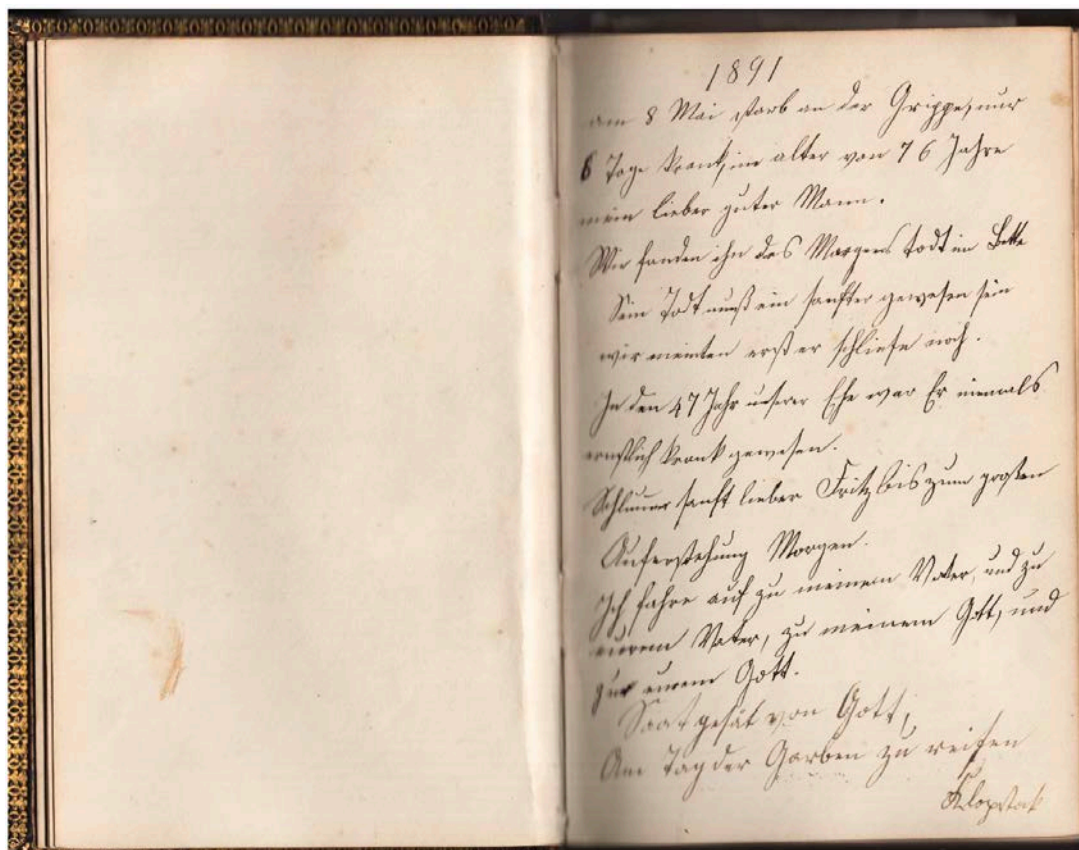 1891
am 8 Mai starb an der Grippe, nur
6 Tage krank, im alter von 76 Jahre
mein lieber guter Mann.
Wir fanden ihn des Morgens todt im Bette
Sein Todt muß ein sanfter gewesen sein
wir meinten erst er schliefe noch.
In den 47 Jahr unserer Ehe war Er niemals
ernstlich krank gewesen.
Schlumre sanft lieber Fritz bis zum großen
Auferstehung Morgen.
Ich fahre auf zu meinem Vater, und zu
eurem Vater, zu meinem Gott, und
zu eurem Gott.
Saat gesät von Gott,
Am Tag der Garben zu reifen
Klopstok